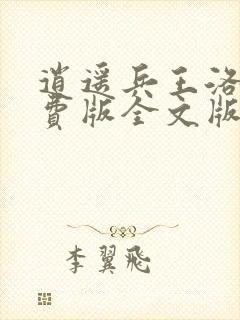 逍遥兵王洛
费版全文版
李翼飛